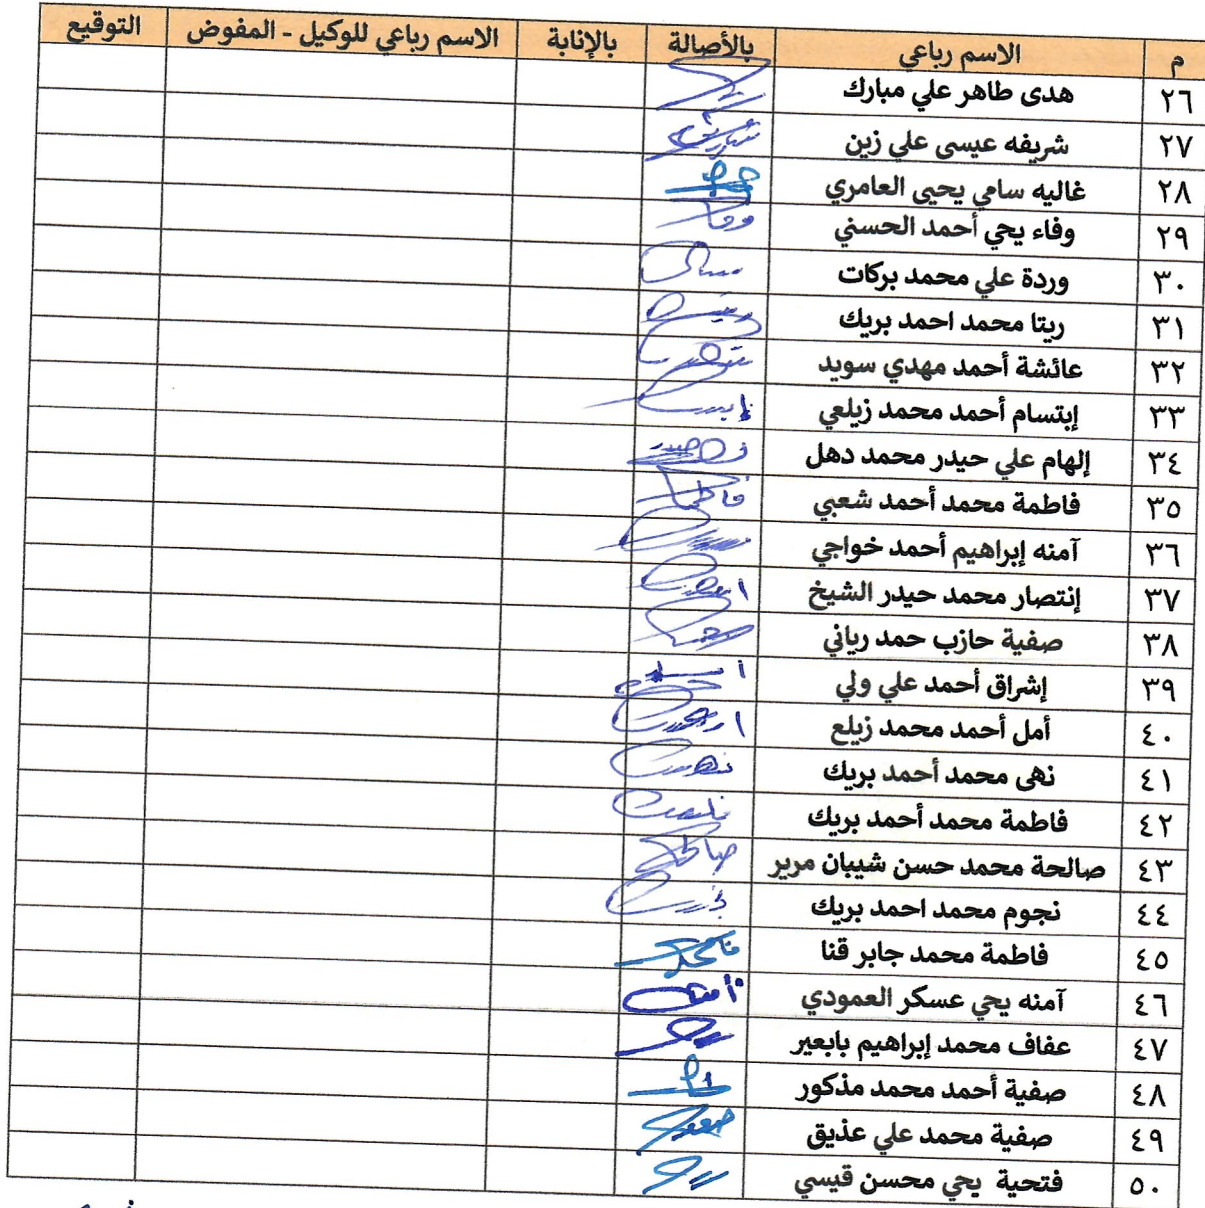 م الاسم رباعي بالأصالة بالإنابة الاسم رباعي للوكيل - المفوض التوقيع
٢٦ هدى طاهر علي مبارك
٢٧ شريفه عيسى علي زين
٢٨ غاليه سامي يحيى العامري
٢٩ وفاء يحي أحمد الحسني
٣٠ وردة علي محمد بركات
٣١ ريتا محمد احمد بريك
٣٢ عائشة أحمد مهدي سويد
٣٣ إبتسام أحمد محمد زيلعي
٣٤ إلهام علي حيدر محمد دهل
٣٥ فاطمة محمد أحمد شعبي
٣٦ آمنه إبراهيم أحمد خواجي
٣٧ إنتصار محمد حيدر الشيخ
٣٨ صفية حازب حمد رياني
٣٩ إشراق أحمد علي ولي
٤٠ أمل أحمد محمد زيلع
٤١ نهى محمد أحمد بريك
٤٢ فاطمة محمد أحمد بريك
٤٣ صالحة محمد حسن شيبان مرير
٤٤ نجوم محمد احمد بريك
٤٥ فاطمة محمد جابر قنا
٤٦ آمنه يحي عسكر العمودي
٤٧ عفاف محمد إبراهيم بابعير
٤٨ صفية أحمد محمد مذكور
٤٩ صفية محمد علي عذيق
٥٠ فتحية يحي محسن قيسي